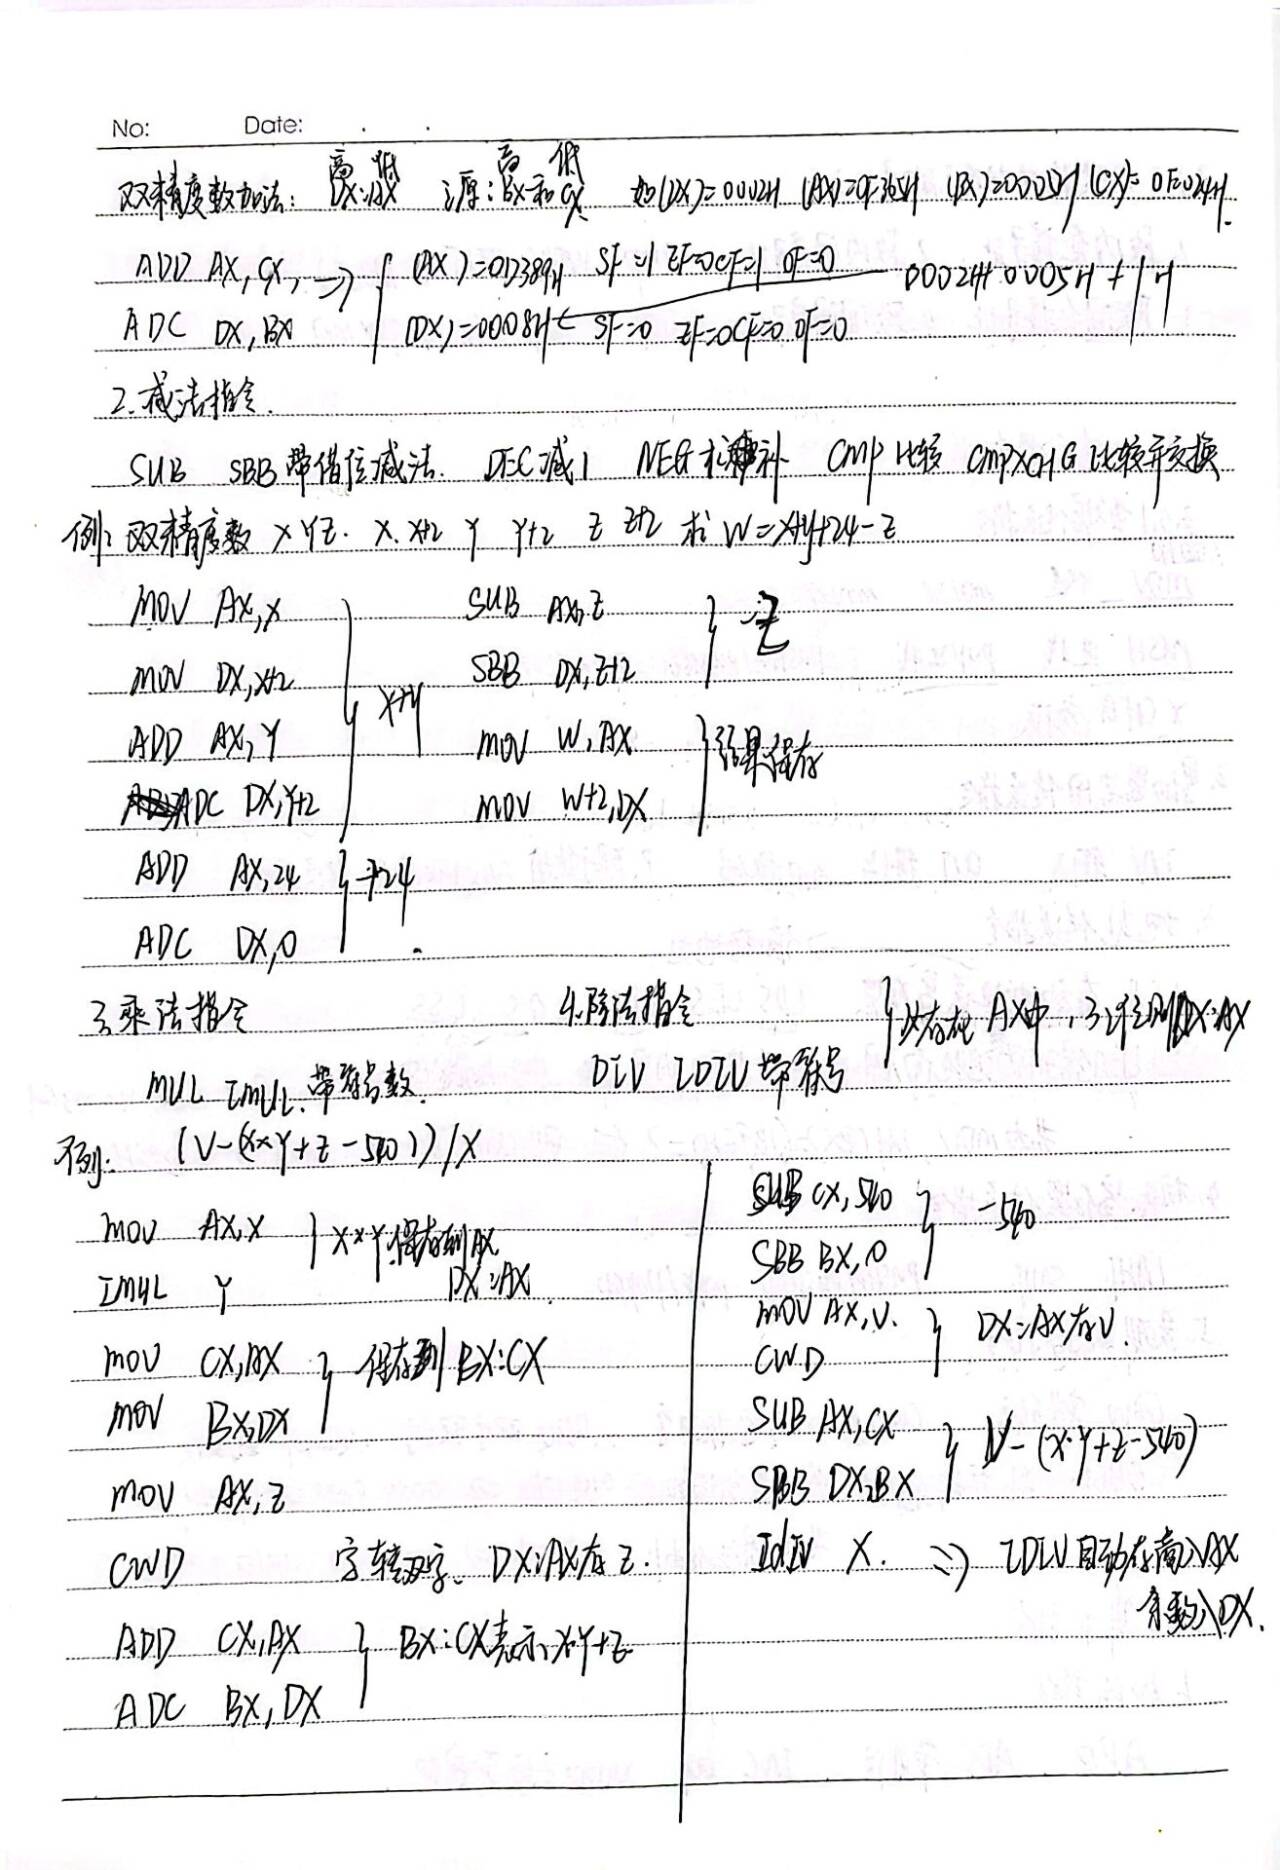 No: Date:
高 低 高 低
双精度数加法: DX:AX 源:BX和CX 如(DX)=0002H (AX)=0F365H (BX)=0005H (CX)=0E024H.
ADD AX,CX, ⇒ (AX)=0D389H SF=1 ZF=0 CF=1 OF=0 0002H+0005H+1H
ADC DX,BX (DX)=0008H SF=0 ZF=0 CF=0 OF=0
2.减法指令.
SUB SBB带借位减法. DEC减1 NEG求补 CMP比较 CMPXCHG比较并交换
例: 双精度数XYZ. X.X+2 Y Y+2 Z Z+2 求W=X+Y+24-Z
MOV AX,X SUB AX,Z -Z
MOV DX,X+2 SBB DX,Z+2
X+Y
ADD AX,Y MOV W,AX 结果保存
ADC DX,Y+2 MOV W+2,DX
ADD AX,24 +24
ADC DX,0
3.乘法指令 4.除法指令 存在AX中, DX:AX
MUL IMUL.带符号数. DIV IDIV带符号
例: (V-(X*Y+Z-540))/X
MOV AX,X X*Y保存到AX
IMUL Y DX:AX
MOV CX,AX 保存到BX:CX
MOV BX,DX
MOV AX,Z
CWD 字转双字. DX:AX存Z.
ADD CX,AX BX:CX表示X·Y+Z
ADC BX,DX
SUB CX,540 -540
SBB BX,0
MOV AX,V. DX:AX存V.
CWD
SUB AX,CX V-(X·Y+Z-540)
SBB DX,BX
IdIV X. ⇒ IDIV自动存商入AX
余数入DX.